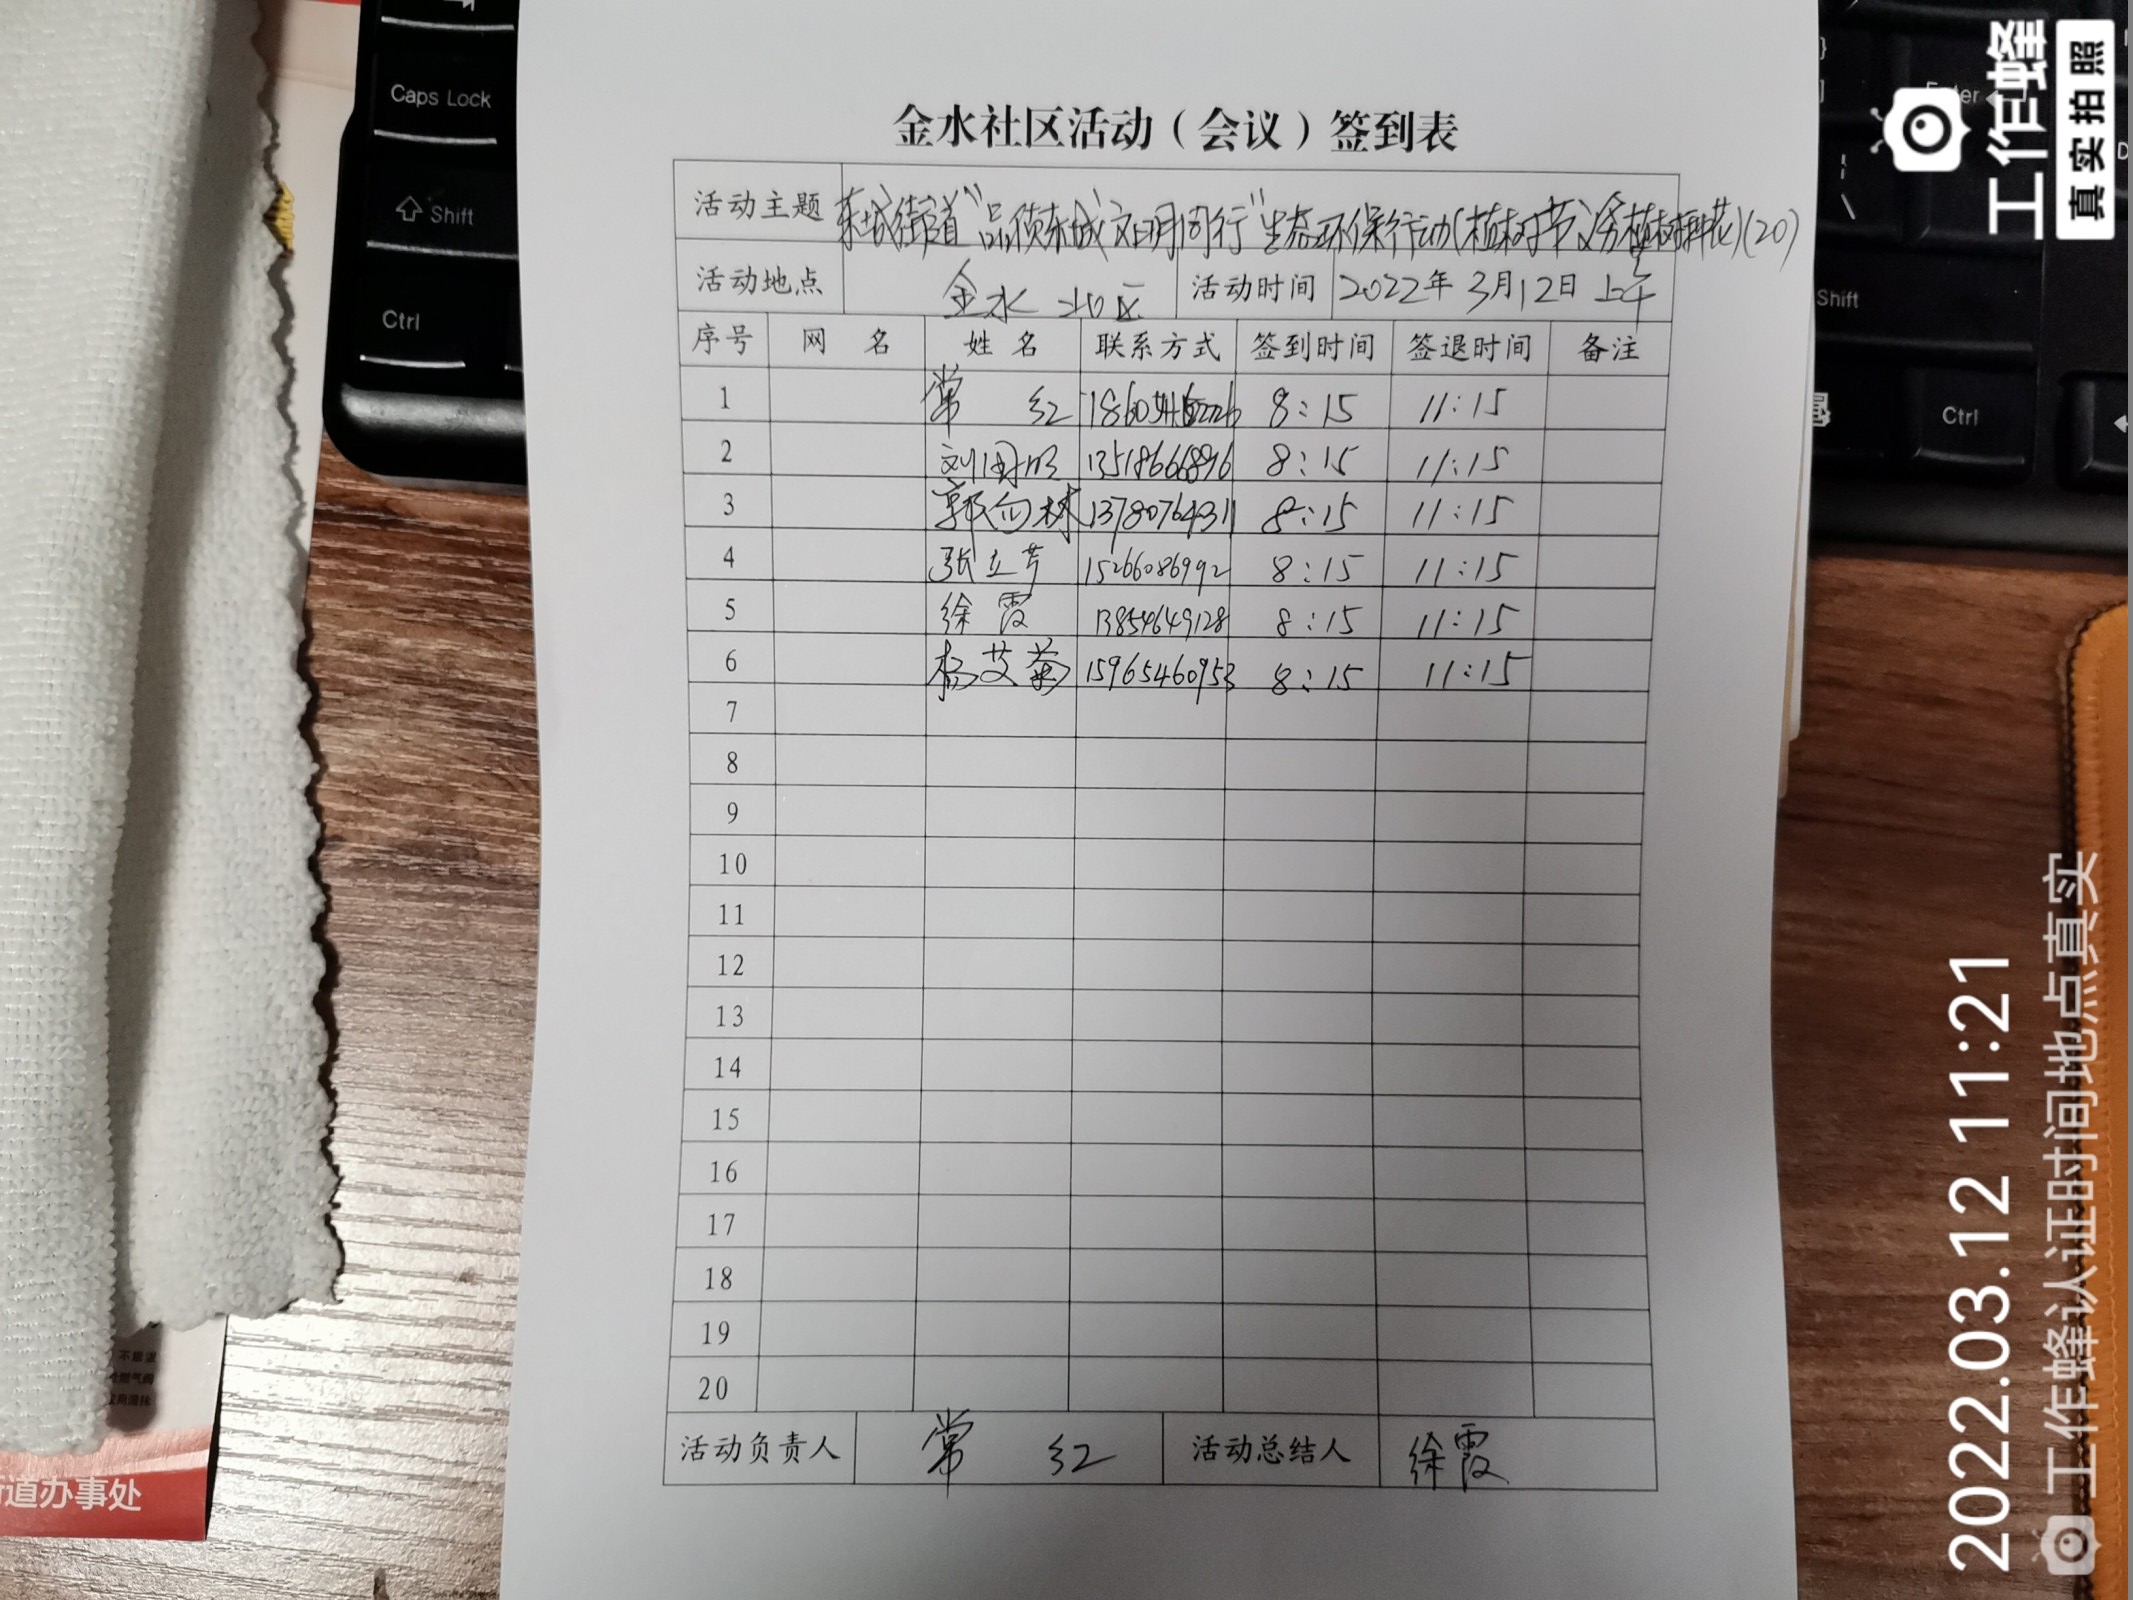 金水社区活动（会议）签到表
活动主题 东城街道“品质东城 文明同行”生态环保行动(植树节义务植树种花)(20)
活动地点 金水社区 活动时间 2022年3月12日 上午
序号 网 名 姓 名 联系方式 签到时间 签退时间 备注
1 常 红 8:15 11:15
2 13518666896 8:15 11:15
3 郭向林 13780764311 8:15 11:15
4 张立芳 15266086992 8:15 11:15
5 徐霞 13854649128 8:15 11:15
6 杨艾菊 15965460953 8:15 11:15
7
8
9
10
11
12
13
14
15
16
17
18
19
20
活动负责人 常 红 活动总结人 徐霞
Caps Lock
Shift
Ctrl
Enter
Shift
Ctrl
道办事处
工作蜂
真实拍照
2022.03.12 11:21
工作蜂认证时间地点真实